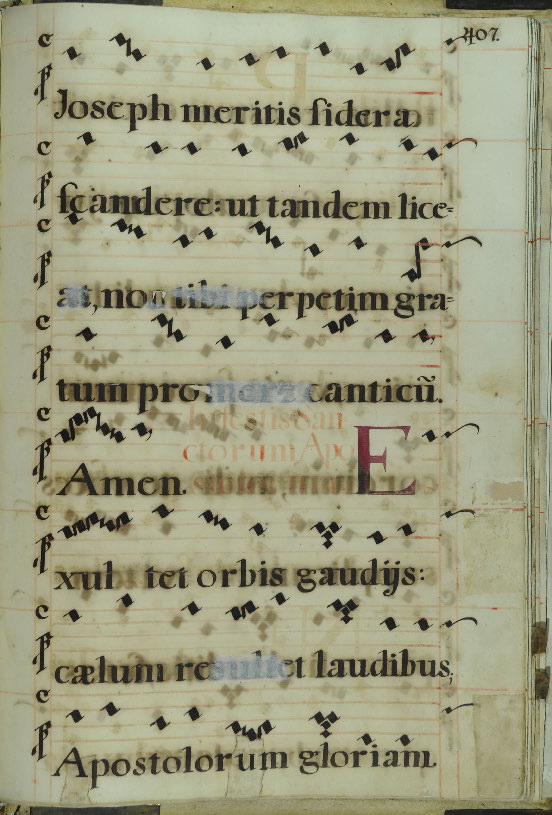 407.
Joseph meritis sidera
scandere: ut tandem lice=
at, nos tibi perpetim gra=
tum promere canticũ.
In festis San
ctorum Apo
Amen. E
xultet orbis gaudijs:
cælum resultet laudibus,
Apostolorum gloriam